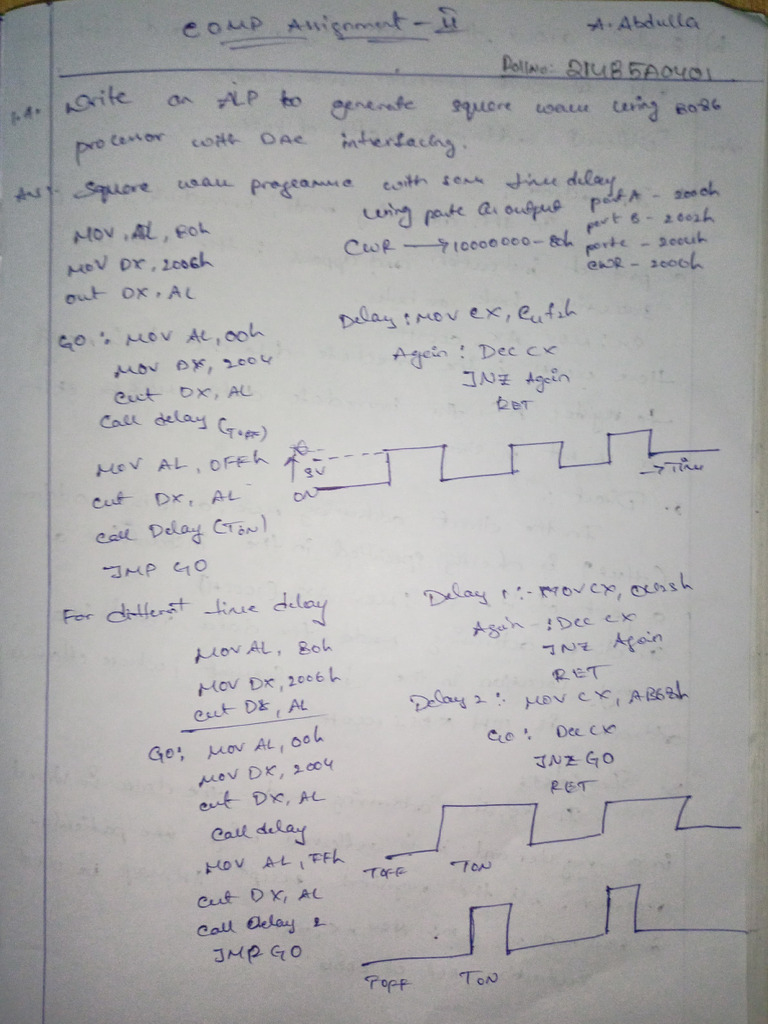 COMP Assignment - II
A. Abdulla
Roll No: 214B5A0401
1.A. Write an ALP to generate square wave using 8086
processor with DAC interfacing.
Ans:- Square wave programme with same time delay
using portc as output
CWR → 10000000 - 80h
port A - 2000h
port B - 2002h
portc - 2004h
CWR - 2006h
MOV AL, 80h
MOV DX, 2006h
out DX, AL
GO : MOV AL, 00h
MOV DX, 2004
out DX, AL
Call delay (TOFF)
MOV AL, OFFh
out DX, AL
call Delay (TON)
JMP GO
Delay : MOV CX,
Again : Dec CX
JNZ Again
RET
5V
ON
→ Time
For different time delay
MOV AL, 80h
MOV DX, 2006h
out DX, AL
GO: MOV AL, 00h
MOV DX, 2004
out DX, AL
Call delay
MOV AL, FFh
out DX, AL
call Delay 2
JMP GO
Delay 1 :- MOV CX,
Again : Dec CX
JNZ Again
RET
Delay 2 : MOV CX, AB68h
GO : Dec CX
JNZ GO
RET
TOFF TON
TOFF TON